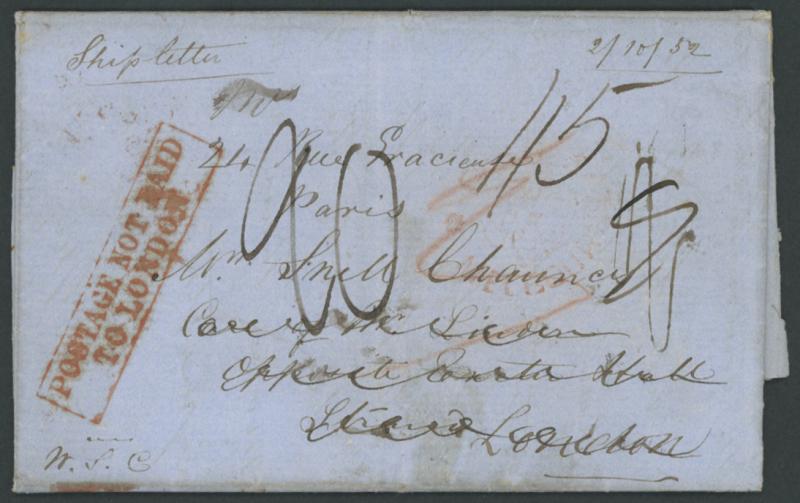 Ship letter
2/10/52
24 Rue Gracieuse
Paris
1/5
20
POSTAGE NOT PAID
TO LONDON
Mr Snell Chauncy
Care of Mr
Opposite Exeter Hall
Strand London
W. S. C